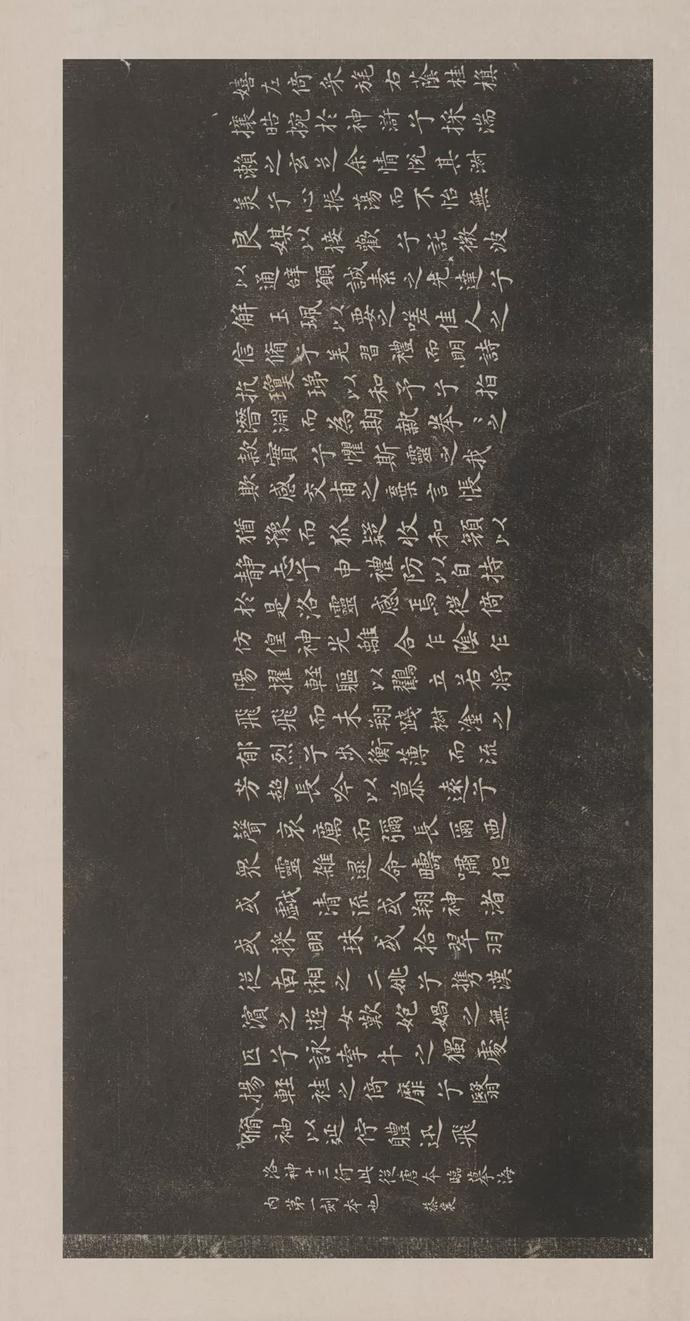 嬉左倚采旄右蔭桂旗
攘皓捥於神滸兮採湍
瀬之玄芝余情悅其淑
美兮心振蕩而不怡無
良媒以接歡兮託微波
以通辭願誠素之先達兮
解玉珮以要之嗟佳人之
信脩兮羌習禮而明詩
抗瓊珶以和予兮指
潛淵而為期執拳〻之
款實兮懼斯靈之我
欺感交甫之棄言悵
猶豫而狐疑收和顏以
靜志兮申禮防以自持
於是洛靈感焉徙倚
仿偟神光離合乍陰乍
陽擢輕軀以鶴立若將
飛飛而未翔踐椒塗之
郁烈兮步衡薄而流
芳超長吟以慕遠兮
聲哀厲而彌長爾迺
衆靈雜遝命疇嘯侶
或戲清流或翔神渚
或採明珠或拾翠羽
從南湘之二姚兮携漢
濱之遊女歎匏媧之無
匹兮詠牽牛之獨處
揚輕袿之倚靡兮翳
脩袖以延佇體迅飛
洛神十三行此從唐本臨摹海
內第一刻本也 蔡襄